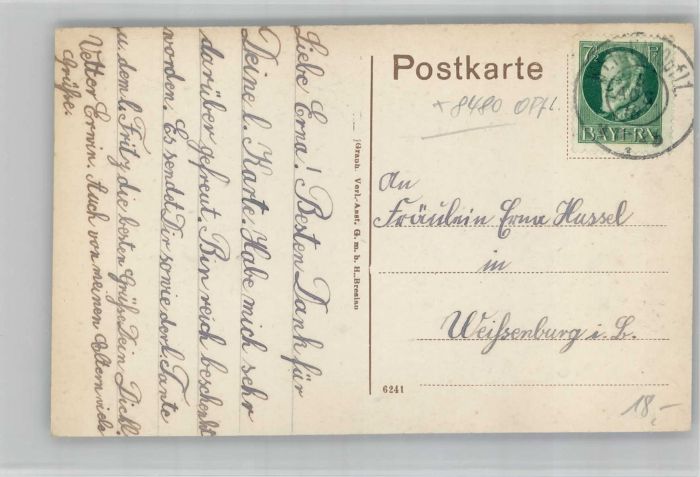 Liebe Erna! Besten Dank für
Deine l. Karte. Habe mich sehr
darüber gefreut. Bin reich beschenkt
worden. Es sendet Dir sowie dort. Tante
u. dem l. Fritz die besten Grüße Dein Dichl.
Vetter Erwin. Auch von meinen Eltern viele
Grüße.
Postkarte
* 8480 OPfl.
7½
BAYERN
An
Fräulein Erna Hussel
in
Weißenburg i. B.
Graph. Verl.-Anst. G. m. b. H., Breslau
6241
18,-